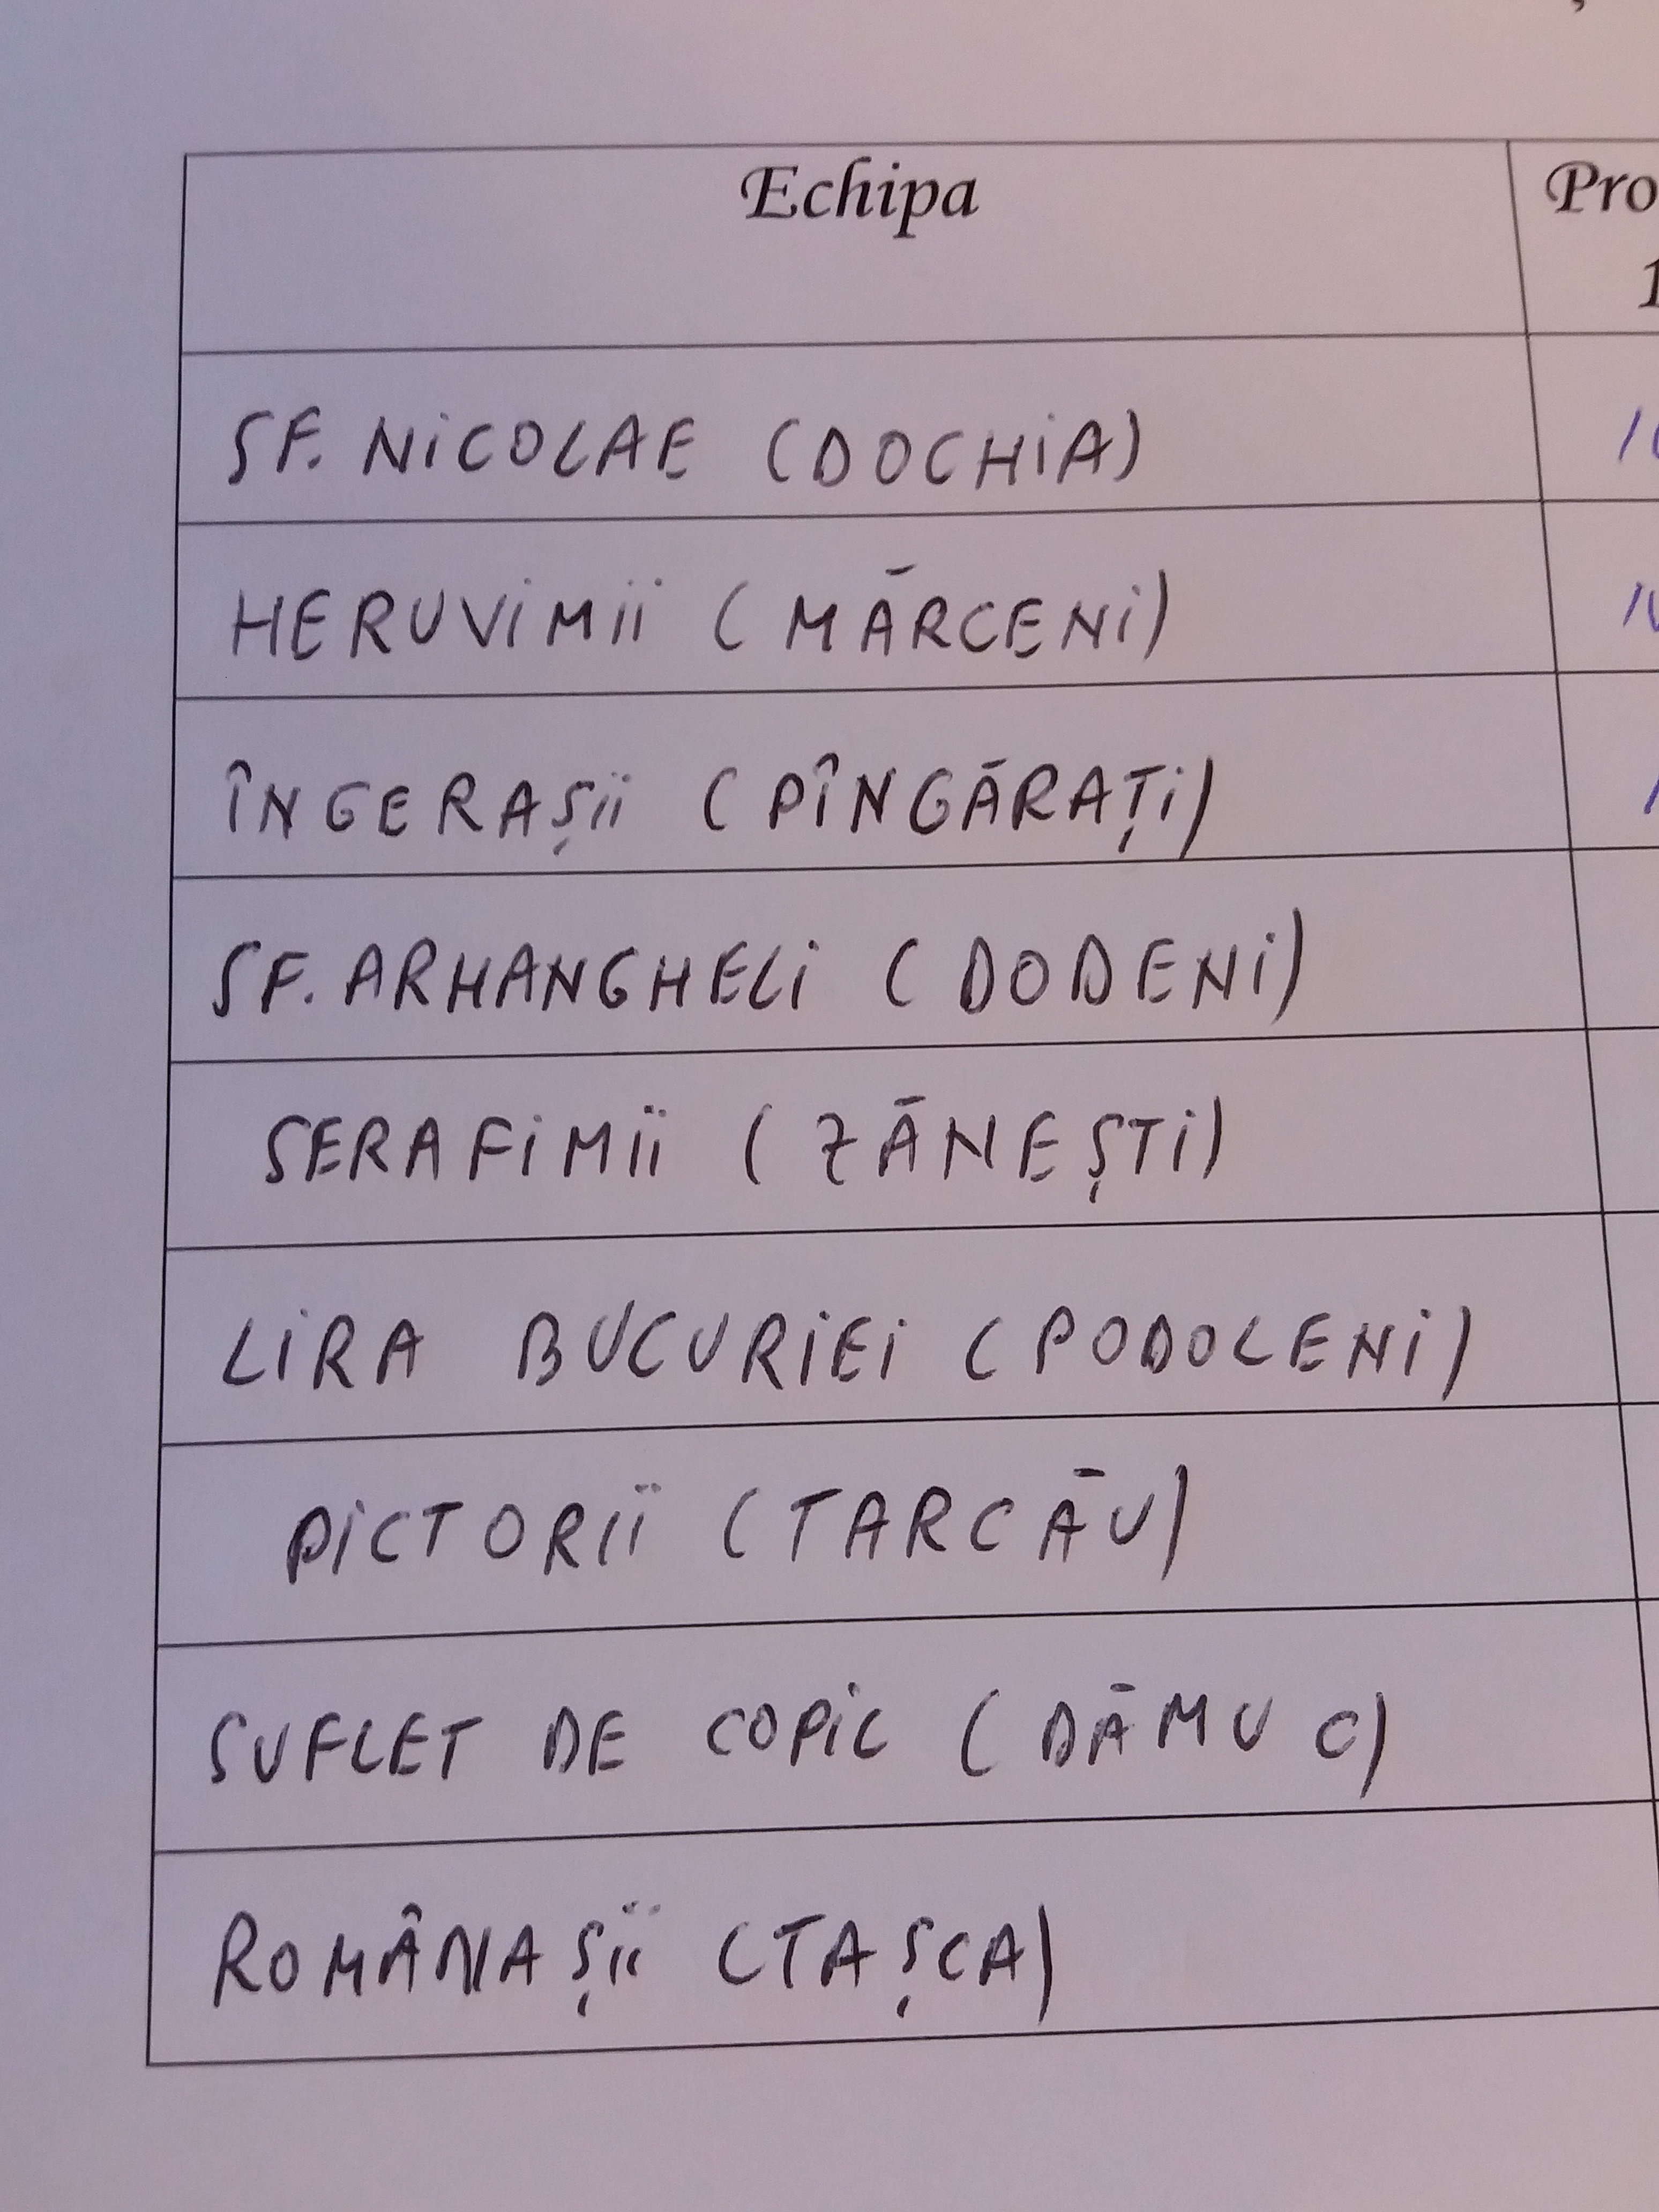 Echipa
SF. NICOLAE (DOCHIA)
HERUVIMII (MĂRCENI)
ÎNGERAȘII (PÎNGĂRAȚI)
SF. ARHANGHELI (DODENI)
SERAFIMII (ZĂNEȘTI)
LIRA BUCURIEI (PODOLENI)
PICTORII (TARCĂU)
SUFLET DE COPIL (DĂMUC)
ROMÂNAȘII (TAȘCA)